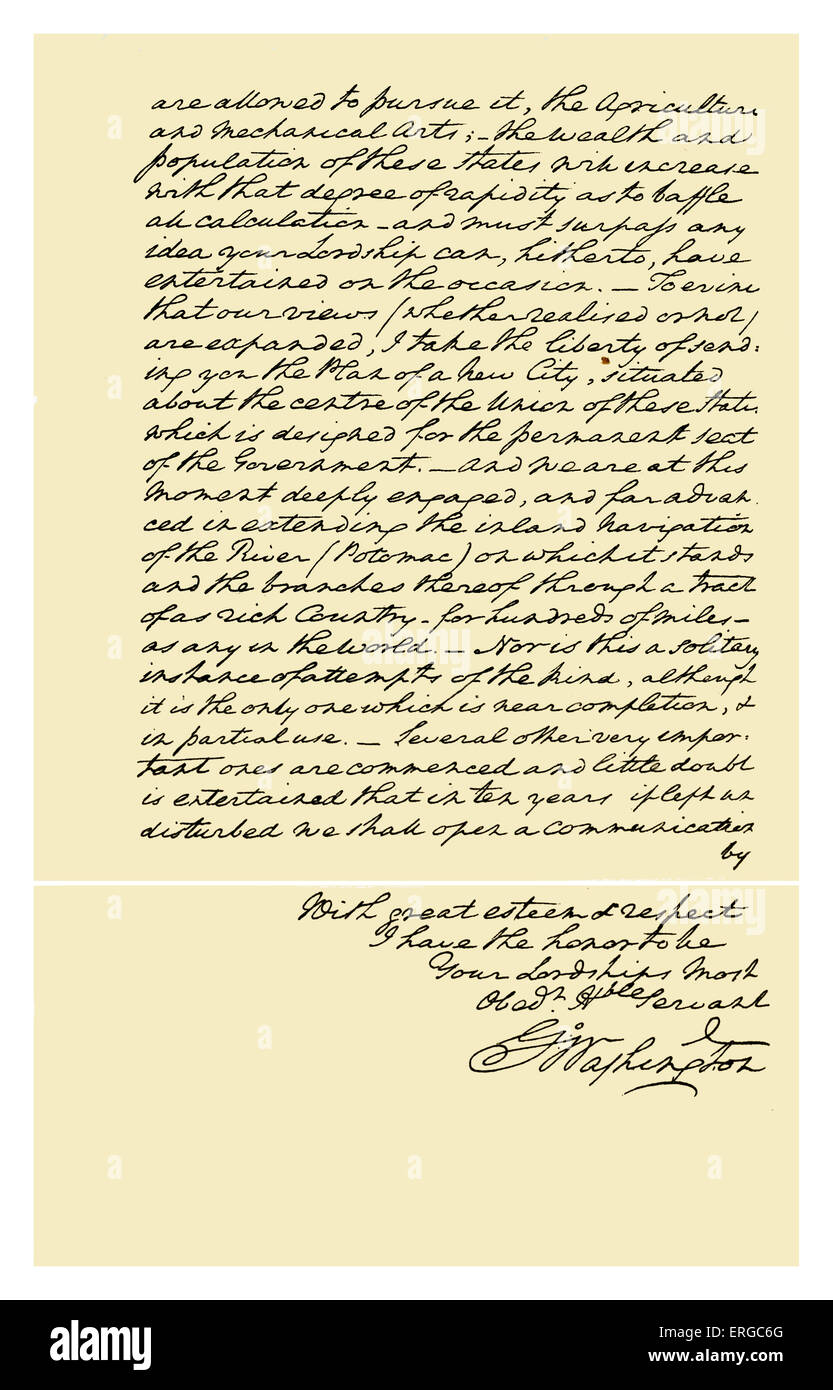 are allowed to pursue it, the Agriculture
and Mechanical Arts; – the wealth and
population of these States will increase
with that degree of rapidity as to baffle
all calculation – and must surpass any
idea your Lordship can, hitherto, have
entertained on the occasion. – To evince
that our views (whether realised or not)
are expanded, I take the liberty of send:
ing you the Plan of a New City, situated
about the centre of the Union of these States
which is designed for the permanent seat
of the Government. – And we are at this
moment deeply engaged, and far advan
ced in extending the inland Navigation
of the River (Potomac) on which it stands
and the branches thereof through a tract
of as rich Country – for hundreds of miles –
as any in the World. – Nor is this a solitary
instance of attempts of the kind, although
it is the only one which is near completion, &
in partial use. – Several other very impor:
tant ones are commenced and little doubt
is entertained that in ten years if left un
disturbed we shall open a communication
by
With great esteem & respect
I have the honor to be
Your Lordships Most
Obedt. Hble Servant
Go Washington
a alamy
alamy
Image ID: ERGC6G
www.alamy.com